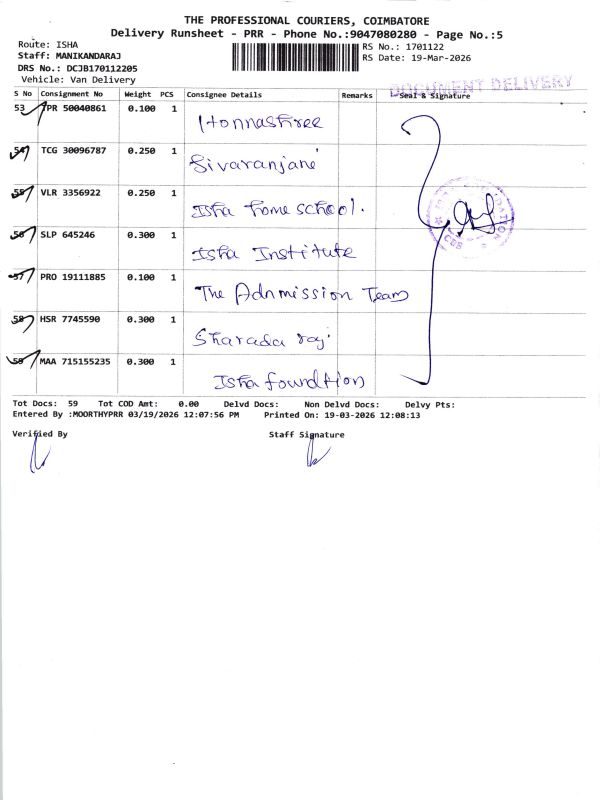 THE PROFESSIONAL COURIERS, COIMBATORE
Delivery Runsheet - PRR - Phone No.:9047080280 - Page No.:5
Route: ISHA
Staff: MANIKANDARAJ
DRS No.: DCJB170112205
Vehicle: Van Delivery
RS No.: 1701122
RS Date: 19-Mar-2026
DOCUMENT DELIVERY
S No Consignment No Weight PCS Consignee Details Remarks Seal & Signature
53 PR 50040861 0.100 1 Honnashree
54 TCG 30096787 0.250 1 Sivaranjane
55 VLR 3356922 0.250 1 Isha home school.
56 SLP 645246 0.300 1 Isha Institute
57 PRO 19111885 0.100 1 The Adnmission Team
58 HSR 7745590 0.300 1 Sharada raj
59 MAA 715155235 0.300 1 Isha foundtion
Tot Docs: 59 Tot COD Amt: 0.00 Delvd Docs: Non Delvd Docs: Delvy Pts:
Entered By :MOORTHYPRR 03/19/2026 12:07:56 PM Printed On: 19-03-2026 12:08:13
Verified By Staff Signature